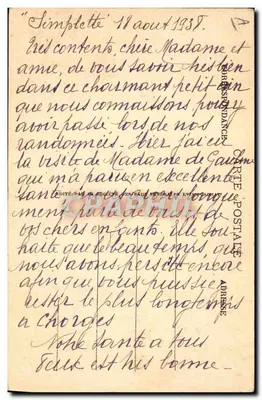 "Simplette" 18 aout 1938.
Très contents, chère Madame et
amie, de vous savoir très bien
dans ce charmant petit coin
que nous connaissons, pour y
avoir passé lors de nos
randonnées. Hier j'ai eu
la visite de Madame de
qui m'a paru en excellente
santé
ment parlé de vous et de
vos chers enfants. Elle sou
haite que le beau temps, que
nous avons persiste encore
afin que vous puissiez
rester le plus longtemps
à Chorges
Notre santé à tous
deux est très bonne.
CORRESPONDANCE
CARTE POSTALE
ADRESSE